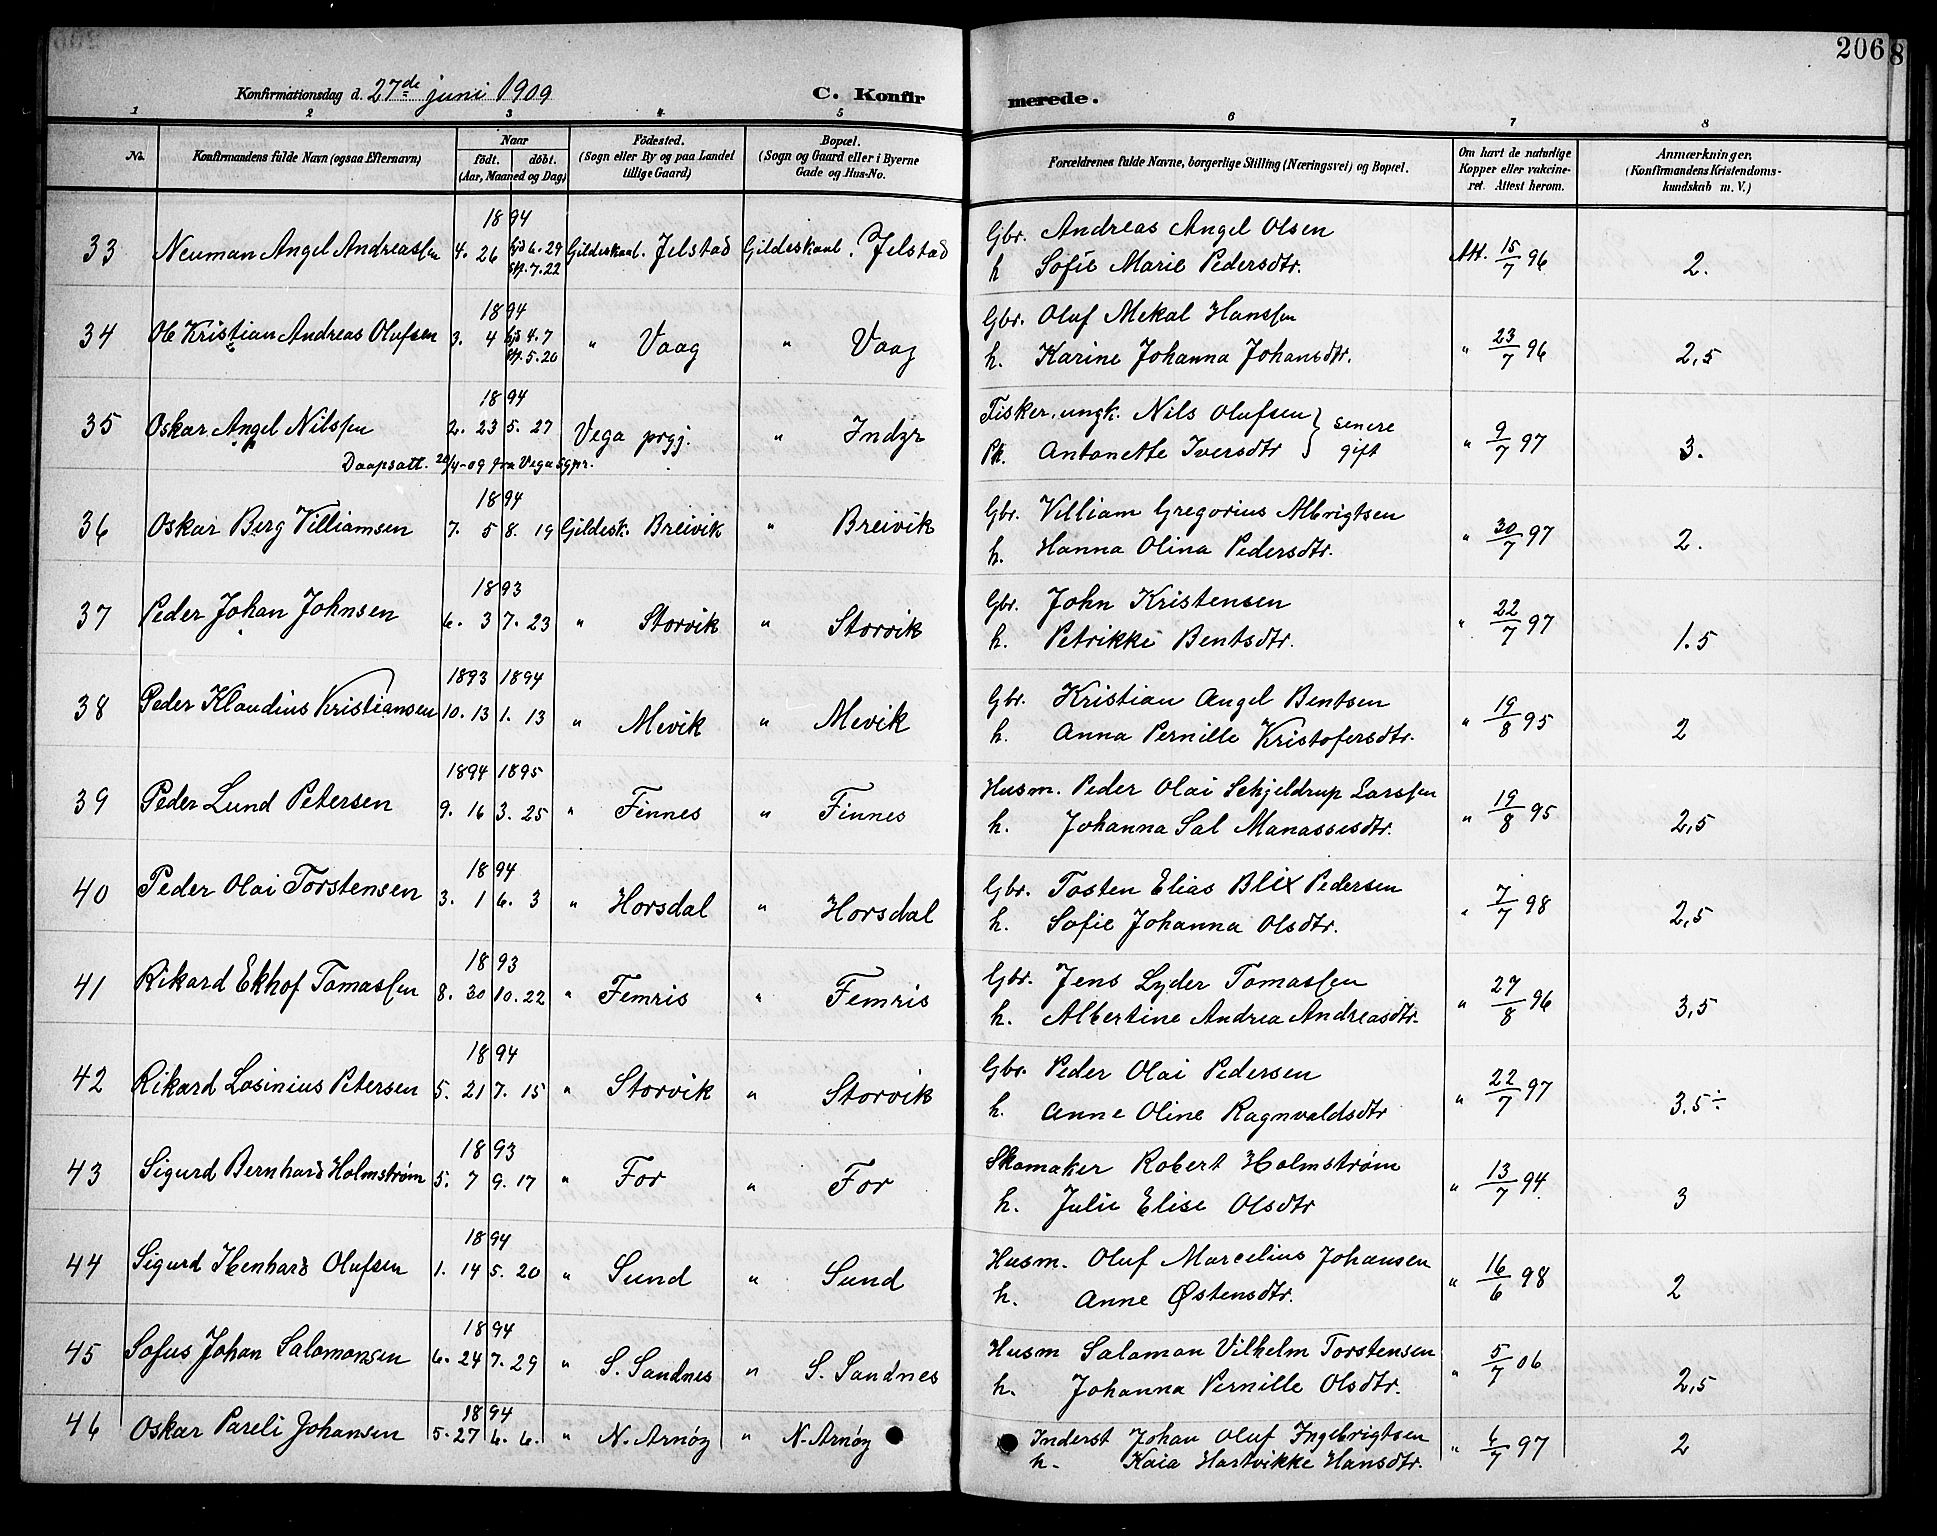 206
8
Konfirmationsdag d. 27de juni 1909 C. Konfirmerede.
1 2 3 4 5 6 7 8
No. Konfirmandens fulde Navn (ogsaa Efternavn) Naar født. døbt. (Aar, Maaned og Dag) Fødested. (Sogn eller By og paa Landet tillige Gaard) Bopæl. (Sogn og Gaard eller i Byerne Gade og Hus-No. Forældrenes fulde Navne, borgerlige Stilling (Næringsvei) og Bopæl. Om havt de naturlige Kopper eller vakcineret. Attest herom. Anmærkninger. (Konfirmandens Kristendomskundskab m. V.)
1894
33 Neuman Angel Andreassen 4. 26 hjd 6. 29 Gildeskaal. Jelstad Gildeskaal. Jelstad Gbr. Andreas Angel Olsen Att. 15/7 96 2.
stf. 7. 22 h Sofie Marie Pedersdtr.
1894
34 Ole Kristian Andreas Olufsen 3. 4 hjd 4. 7 " Vaag " Vaag Gbr. Oluf Mekal Hanssen " 23/7 96 2,5
stf. 5. 20 h. Karine Johanna Johansdtr.
1894
35 Oskar Angel Nilssen 2. 23 5. 27 Vega prgj. " Indyr Fisker, ungk. Nils Olufsen } senere " 9/7 97 3.
Daapsatt. 20/4-09 fra Vega sgpr. Pk. Antonette Iversdtr } gift
1894
36 Oskar Berg Villiamsen 7. 5 8. 19 Gildesk. Breivik " Breivik Gbr. Villiam Gregorius Albrigtsen " 30/7 97 2.
h. Hanna Olina Pedersdtr.
1893
37 Peder Johan Johnsen 6. 3 7. 23 " Storvik " Storvik Gbr. John Kristensen " 22/7 97 1.5
h. Petrikke Bentsdtr.
1893 1894
38 Peder Klaudius Kristiansen 10. 13 1. 13 " Mevik " Mevik Gbr. Kristian Angel Bentsen " 19/8 95 2
h. Anna Pernille Kristofersdtr.
1894 1895
39 Peder Lund Petersen 9. 16 3. 25 " Finnes " Finnes Husm. Peder Olai Schjeldrup Larssen " 19/8 95 2,5
h. Johanna Sal Manassesdtr.
1894
40 Peder Olai Torstensen 3. 1 6. 3 " Horsdal " Horsdal Gbr. Tosten Elias Blix Pedersen " 7/7 98 2,5
h. Sofie Johanna Olsdtr.
1893
41 Rikard Ekhof Tomassen 8. 30 10. 22 " Femris " Femris Gbr. Jens Lyder Tomassen " 27/8 96 3,5
h. Albertine Andrea Andreasdtr.
1894
42 Rikard Losinius Petersen 5. 21 7. 15 " Storvik " Storvik Gbr. Peder Olai Pedersen " 22/7 97 3.5÷
h. Anne Oline Ragnvaldsdtr
1893
43 Sigurd Bernhard Holmstrøm 5. 7 9. 17 " For " For Skomaker Robert Holmstrøm " 13/7 94. 3
h. Julie Elise Olsdtr
1894
44 Sigurd Ibenhard Olufsen 1. 14 5. 20 " Sund " Sund Husm. Oluf Marcelius Johansen " 16/6 98 2
h. Anne Østensdtr.
1894
45 Sofus Johan Salomonsen 6. 24 7. 29 " S. Sandnes " S. Sandnes Husm Salamon Vilhelm Torstensen " 5/7 06 2,5
h. Johanna Pernille Olsdtr.
1894
46 Oskar Pareli Johansen 5. 27 6. 6. " N. Arnøy " N. Arnøy Inderst Johan Oluf Ingebrigtsen " 6/7 97 2
h. Kaia Hartvikke Hansdtr.